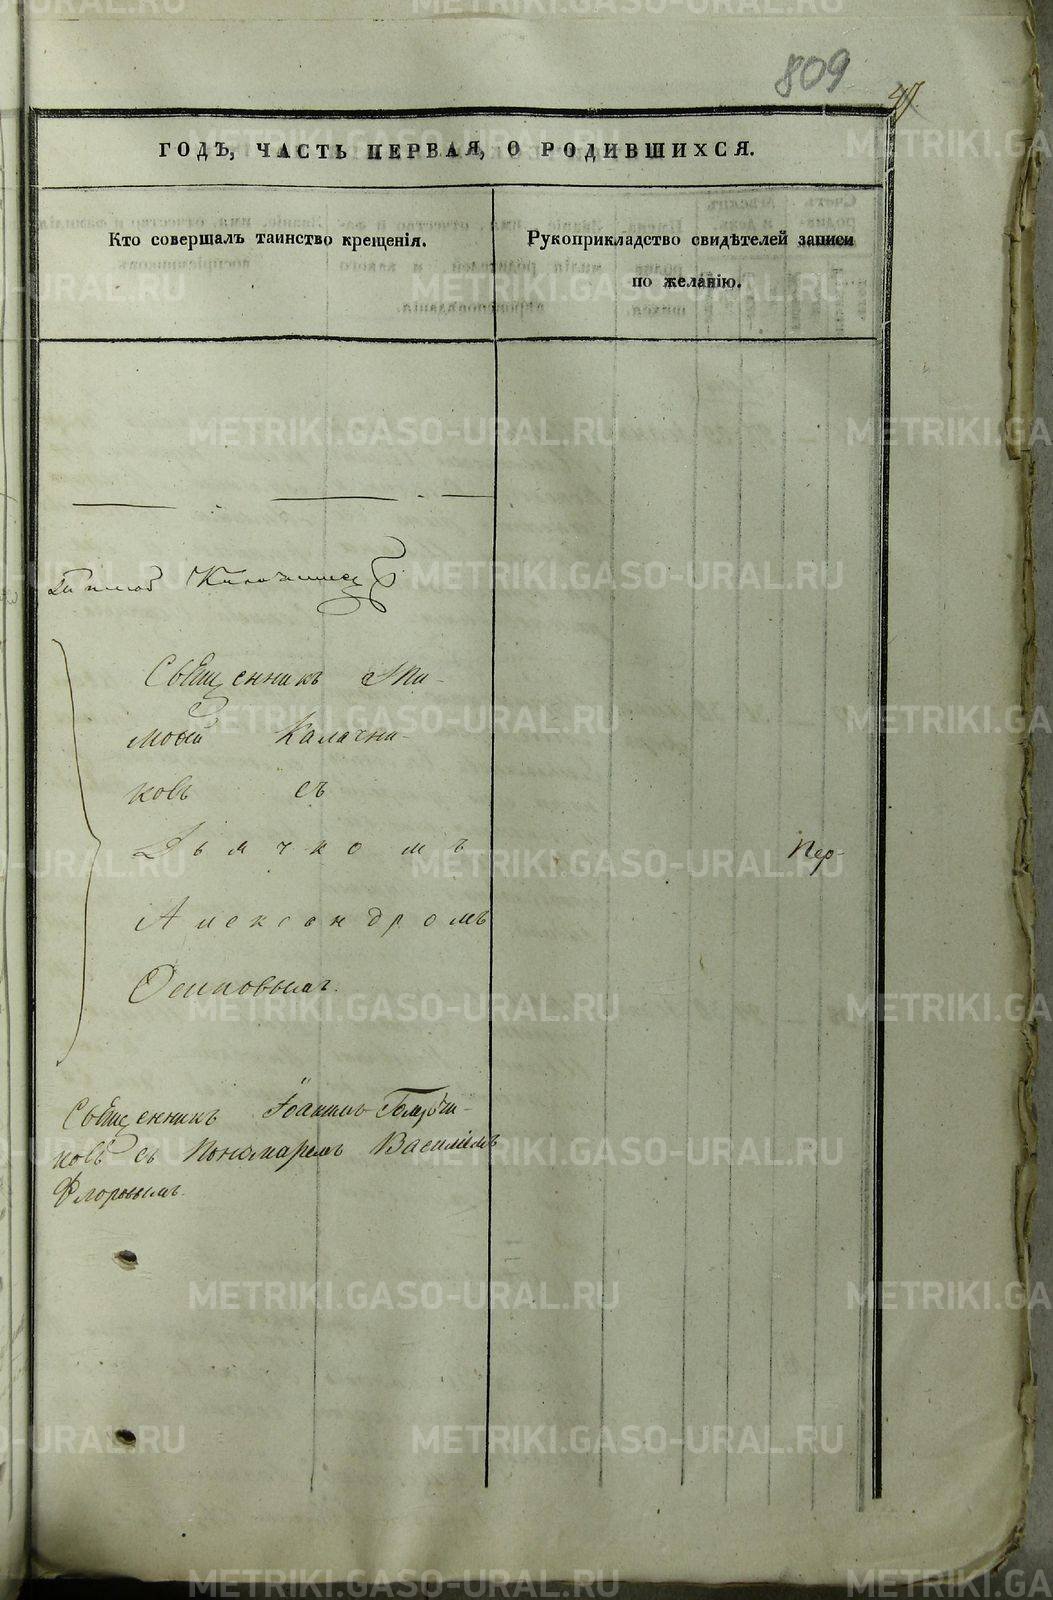 809
47
ГОДЪ, ЧАСТЬ ПЕРВАЯ, О РОДИВШИХСЯ.
Кто совершалъ таинство крещенія.
Рукоприкладство свидѣтелей записи
по желанію.
Священникъ Ти-
моѳей Калачни-
ковъ съ
Дьячкомъ
Александромъ
Осиповымъ.
Пер-
Священникъ Іоаннъ
ковъ съ Пономаремъ Василіемъ
Флоровымъ.
METRIKI.GASO-URAL.RU